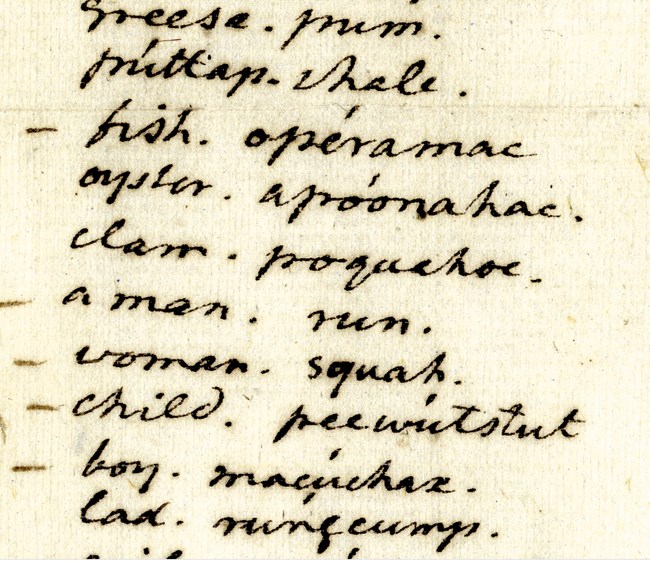 greese. pum.
púttap. shale.
– fish. opéramac
oyster. apóonahac.
clam. poquahoc.
– a man. run.
– woman. squah.
– child. peewútstut
– boy. macúchax.
lad. rungcump.